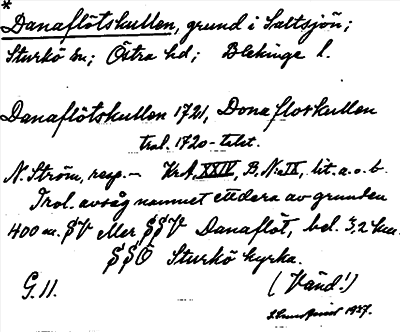 *
Danaflötskullen, grund i Saltsjön;
Sturkö sn; Östra hd; Blekinge l.
Danaflötskullen 1721, Donafloskullen
trol. 1720-talet.
N. Ström, resp. – KrA, XXIV, B. N:o IX, lit. a. o. b.
Trol. avsåg namnet ettdera av grunden
400 m. SV eller SSV Danaflöt, bel. 3,2 km.
SSÖ Sturkö kyrka.
G. 11. (Vänd!)
1927.